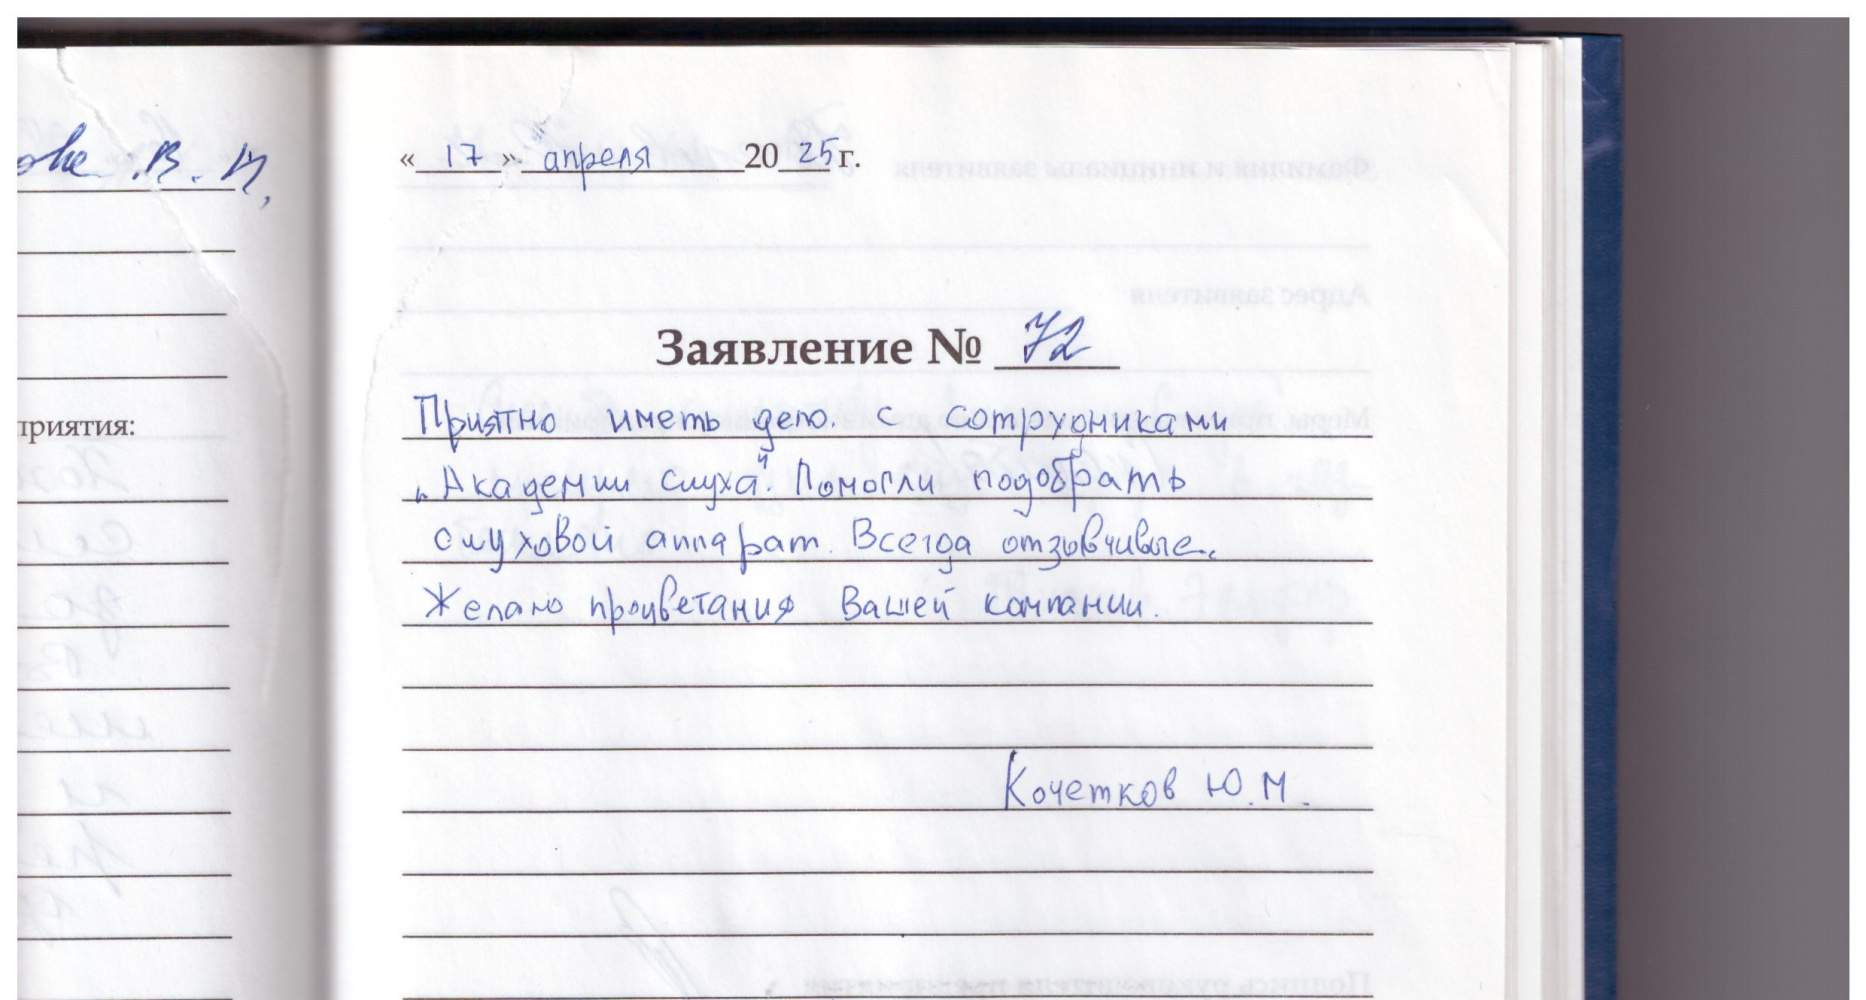 В. И,
приятия:
« 17 » апреля 20 25 г.
Заявление № 72
Приятно иметь дело. с сотрудниками
„Академии слуха". Помогли подобрать
слуховой аппарат. Всегда отзывчивые.
Желаю процветания Вашей компании.
Кочетков Ю.М.